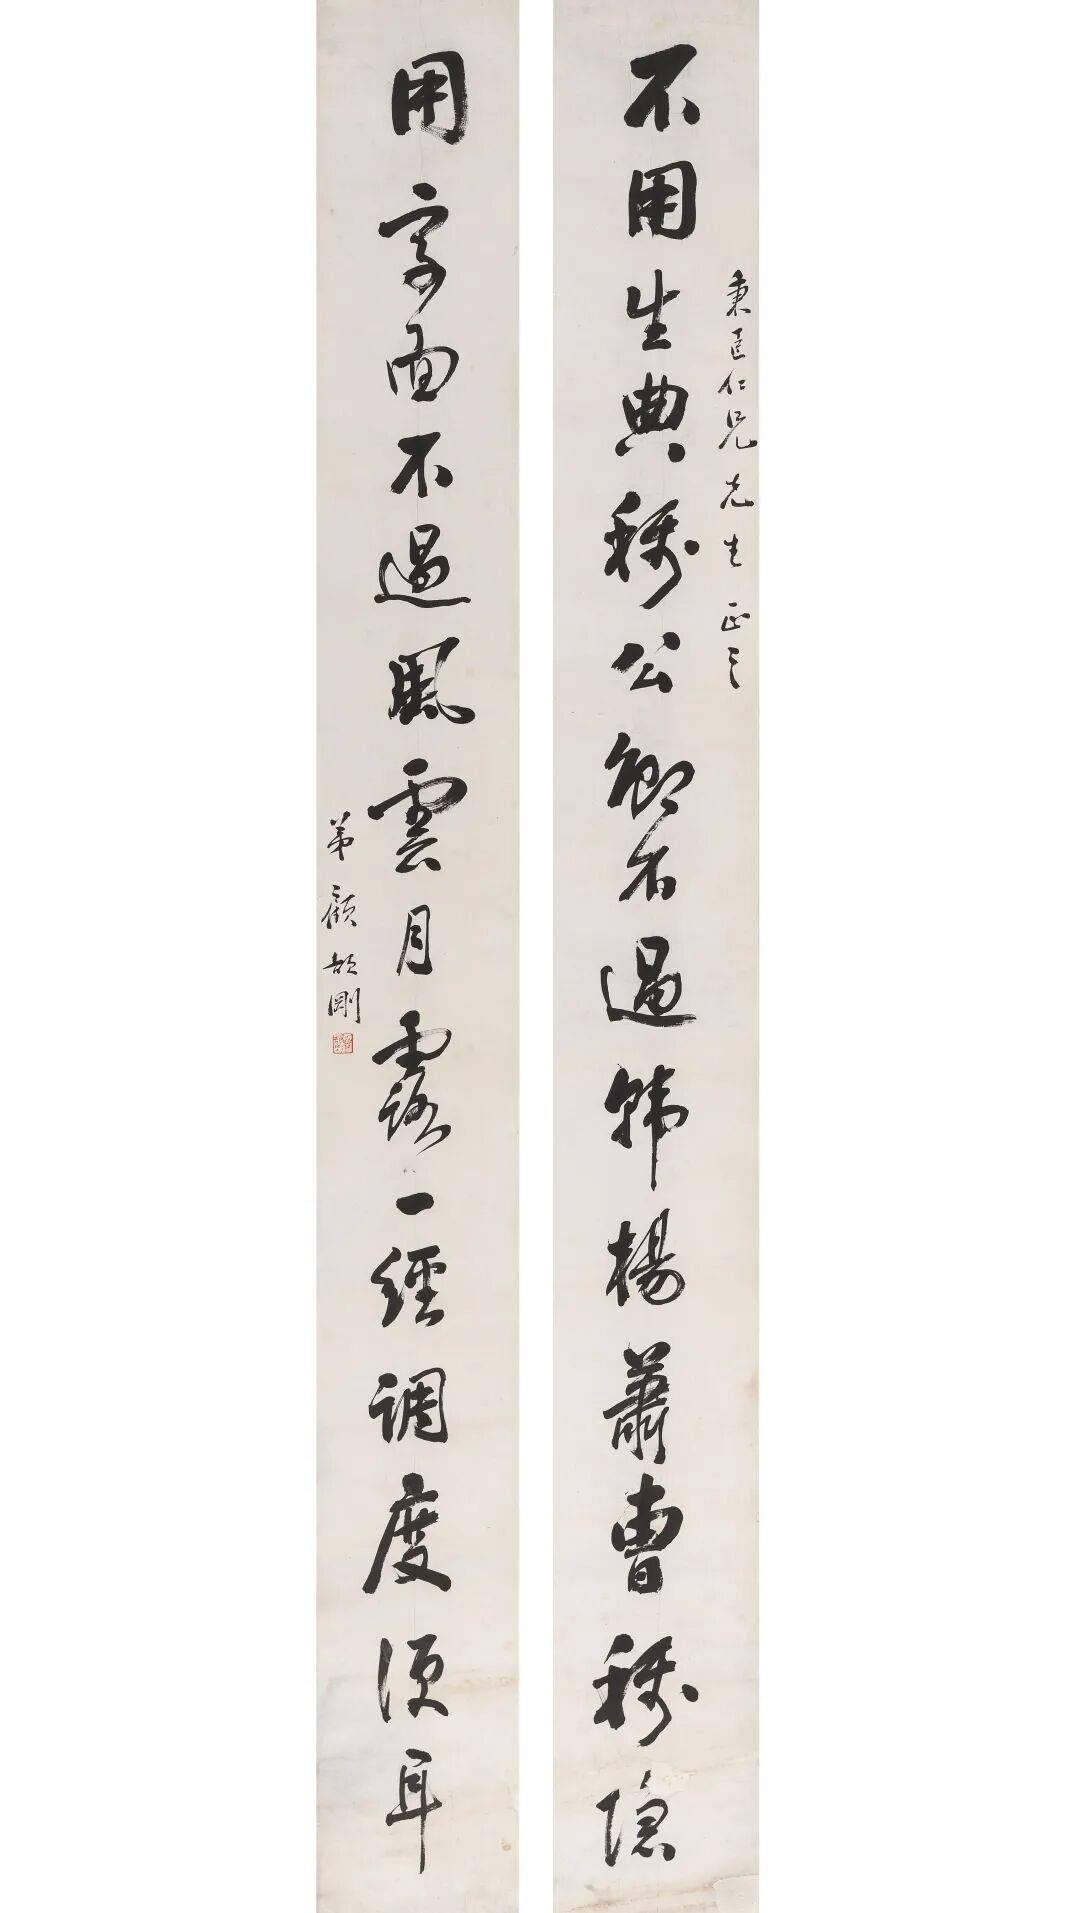 秉臣仁兄先生正之
不用生典稱公卿不過韓楊蕭曹稱隱
用字面不過風雲月露一經調度須耳
弟顧頡剛